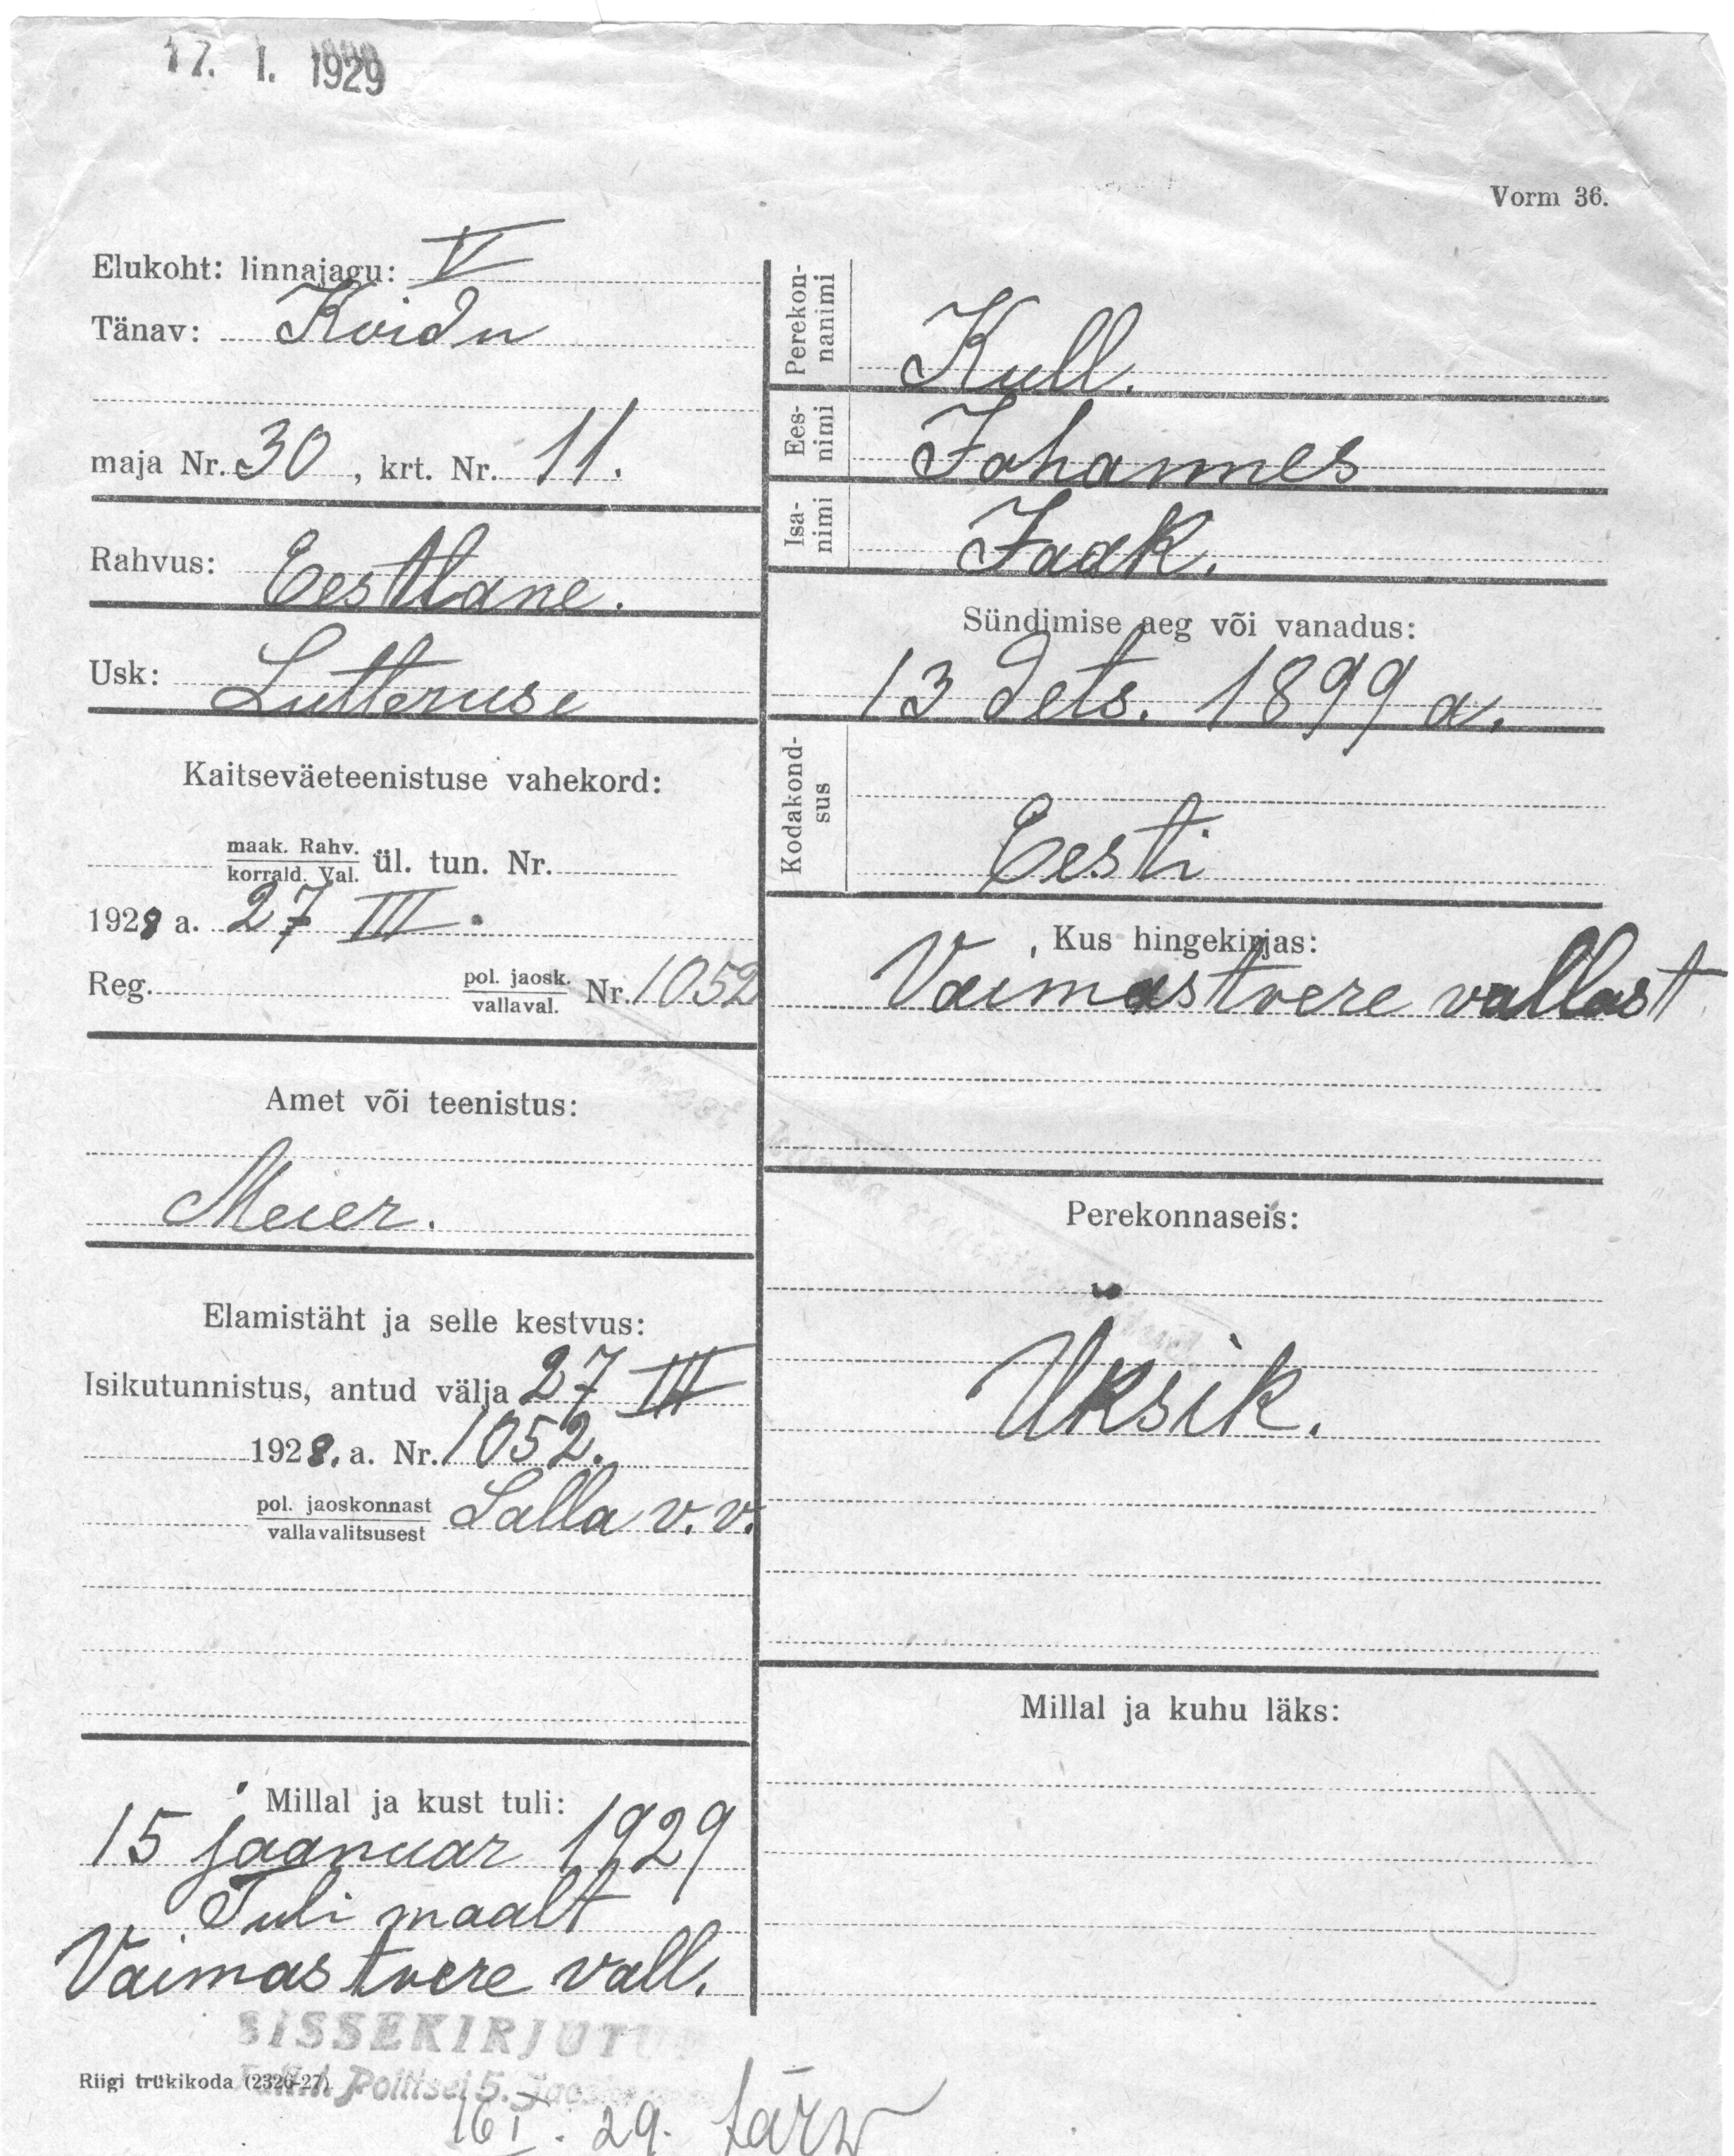 17. 1. 1929
Vorm 36.
Elukoht: linnajagu: V
Tänav: Koidu
maja Nr. 30, krt. Nr. 11.
Rahvus: Eestlane.
Usk: Lutteruse
Kaitseväeteenistuse vahekord:
maak. Rahv.
korrald. Val. ül. tun. Nr.
1928 a. 27 III.
Reg. pol. jaosk.
vallaval. Nr. 1052
Amet või teenistus:
Meier.
Elamistäht ja selle kestvus:
Isikutunnistus, antud välja 27 III
1928. a. Nr. 1052.
pol. jaoskonnast
vallavalitsusest Lalla v. v.
Millal ja kust tuli:
15 jaanuar 1929
Tuli maalt
Vaimastvere vall.
Perekon-
nanimi
Kull.
Ees-
nimi
Johannes
Isa-
nimi
Jaak.
Sündimise aeg või vanadus:
13 dets. 1899 a.
Kodakond-
sus
Eesti
Kus hingekirjas:
Vaimastvere vallast
Perekonnaseis:
Üksik.
Millal ja kuhu läks:
SISSEKIRJUTUD
Riigi trükikoda (2326-27)
Politsei 5.
16 I. 29.